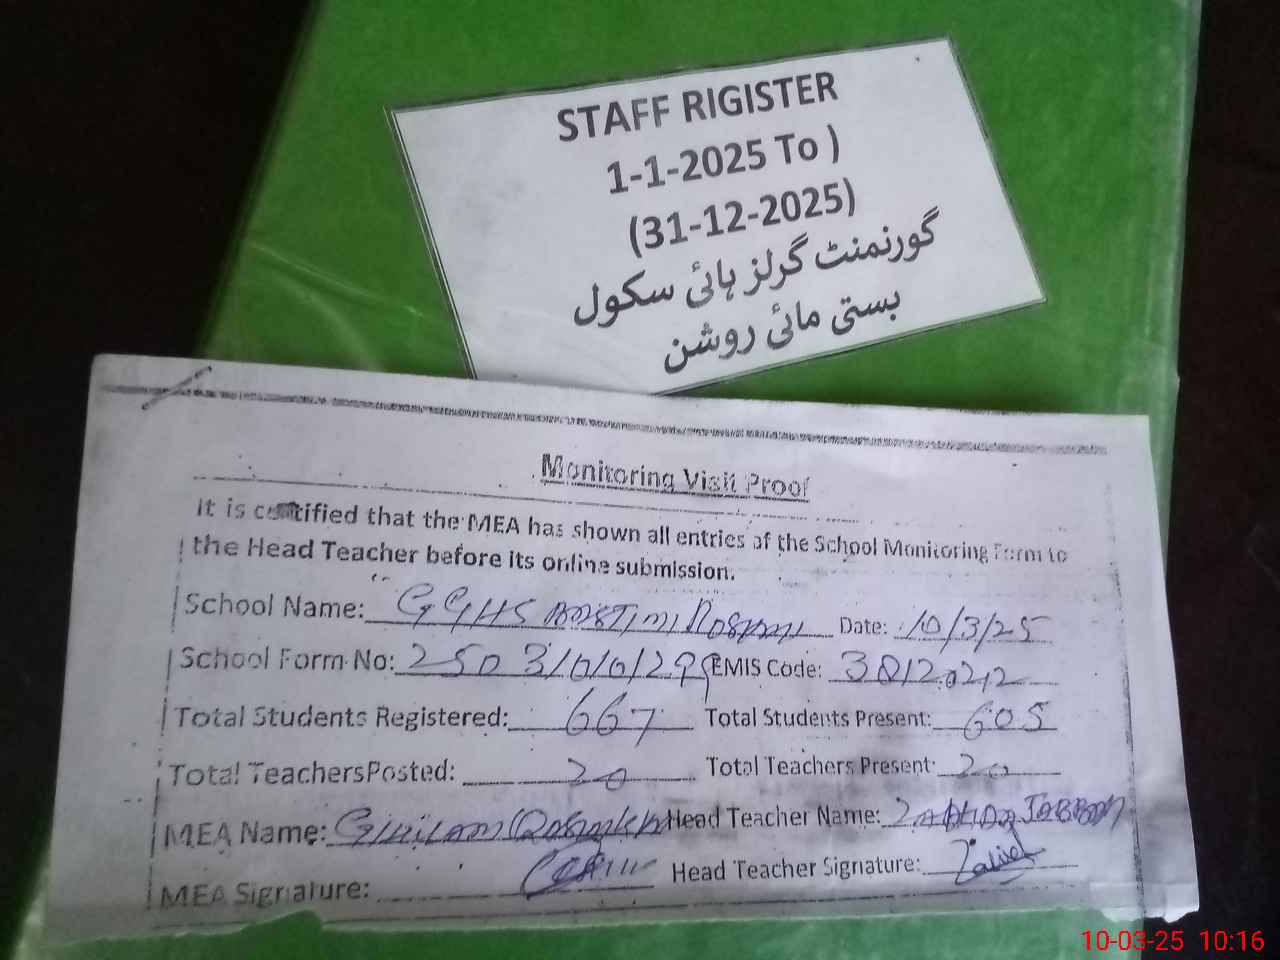 STAFF RIGISTER
1-1-2025 To )
(31-12-2025)
گورنمنٹ گرلز ہائی سکول
بستی مائی روشن
Monitoring Visit Proof
It is certified that the MEA has shown all entries of the School Monitoring Form to
the Head Teacher before its online submission.
School Name: GGHS Date: 10/3/25
School Form No: EMIS Code:
Total Students Registered: 667 Total Students Present: 605
Total Teachers Posted: 20 Total Teachers Present: 20
MEA Name: Head Teacher Name:
MEA Signature: Head Teacher Signature:
10-03-25 10:16